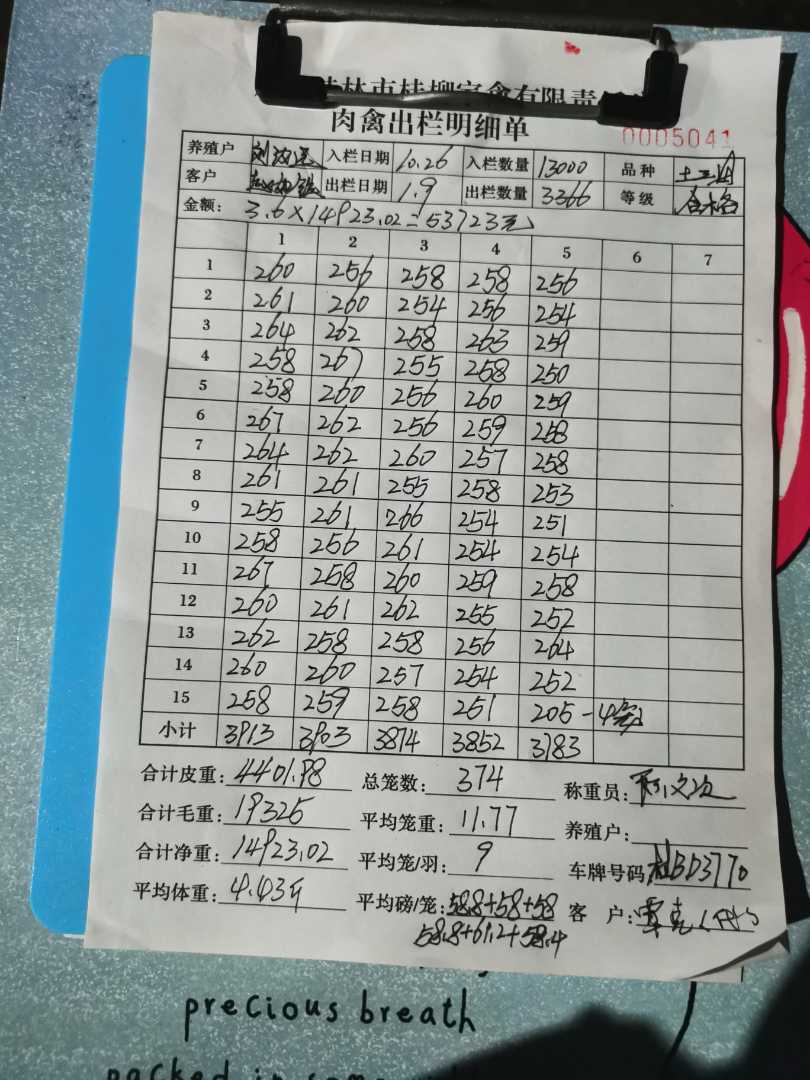 桂林市桂柳家禽有限责
肉禽出栏明细单
0005041
养殖户 入栏日期 10.26 入栏数量 13000 品种 土二
客户 出栏日期 1.9 出栏数量 3366 等级 合格
金额: 3.6×14923.02=53723元
1 2 3 4 5 6 7
1 260 256 258 258 256
2 261 260 254 256 254
3 264 262 258 263 259
4 258 267 255 258 250
5 258 260 256 260 259
6 267 262 256 259 258
7 264 262 260 257 258
8 261 261 255 258 253
9 255 261 266 254 251
10 258 256 261 254 254
11 267 258 260 259 258
12 260 261 262 255 252
13 262 258 258 256 264
14 260 260 257 254 252
15 258 259 258 251 205-4
小计 3913 3903 3874 3852 3783
合计皮重: 4401.98 总笼数: 374 称重员:
合计毛重: 19325 平均笼重: 11.77 养殖户:
合计净重: 14923.02 平均笼/羽: 9 车牌号码 桂BD3770
平均体重: 4.43斤 平均磅/笼: 58.8+58+58 客 户:
58.8+61.2+58.4
precious breath
packed in